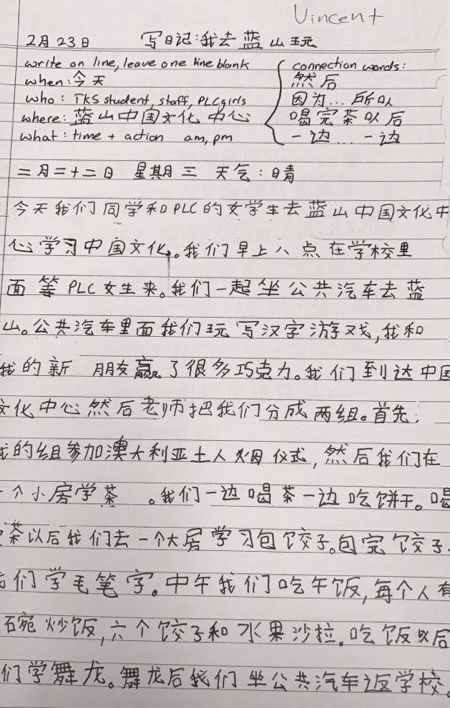 Vincent
2月23日 写日记:我去蓝山玩
write on line, leave one line blank
when:今天
who: TKS student, staff, PLC girls
where: 蓝山中国文化中心
what: time + action am, pm
connection words:
然后
因为...所以
喝完茶以后
一边...一边
二月二十二日 星期三 天气:晴
今天我们同学和PLC的女学生去蓝山中国文化中
心学习中国文化。我们早上八点在学校里
面等PLC女生来。我们一起坐公共汽车去蓝
山。公共汽车里面我们玩写汉字游戏,我和
我的新朋友赢了很多巧克力。我们到达中国
文化中心然后老师把我们分成两组。首先,
我的组参加澳大利亚土人烟仪式,然后我们在
一个小房学茶。我们一边喝茶一边吃饼干。喝
茶以后我们去一个大房学习包饺子。包完饺子
我们学毛笔字。中午我们吃午饭,每个人有
碗炒饭,六个饺子和水果沙拉。吃饭以后
们学舞龙。舞龙后我们坐公共汽车返学校。